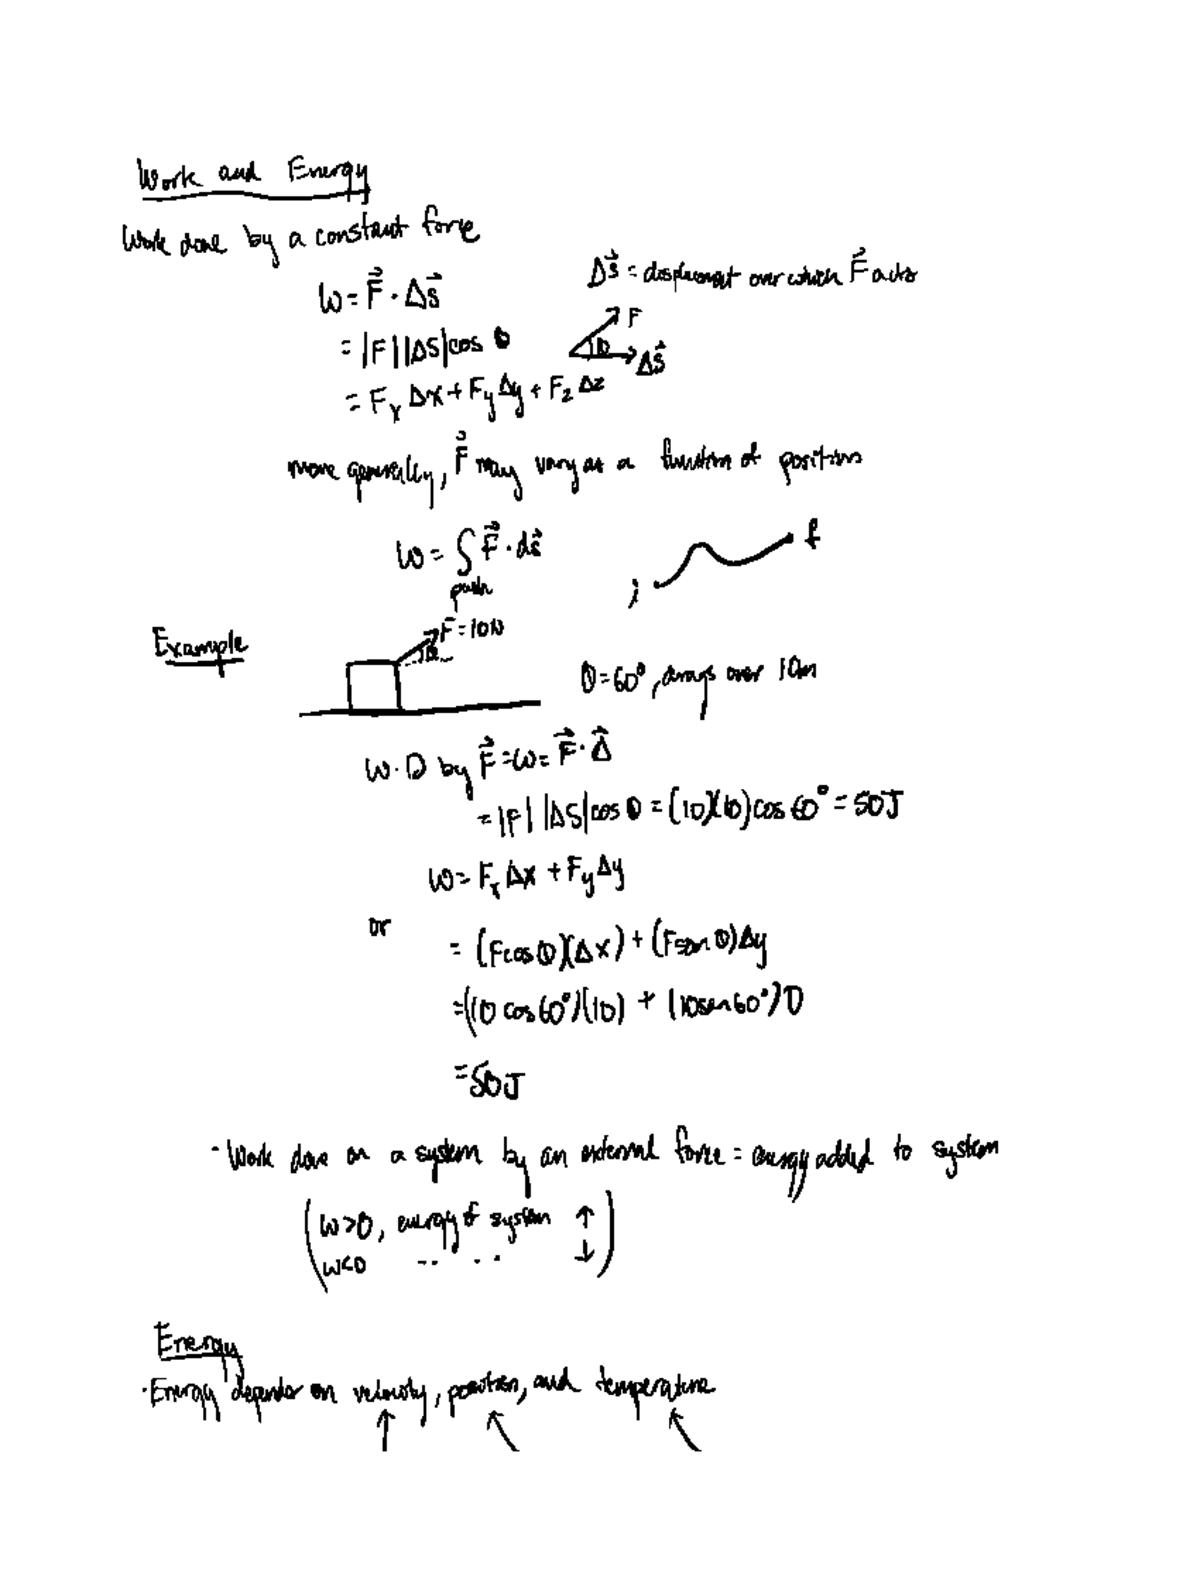 Work and Energy
Work done by a constant force
Δs⃗ = displacement over which F⃗ acts
W = F⃗ · Δs⃗
= |F| |ΔS| cos θ
F
θ
Δs⃗
= Fx Δx + Fy Δy + Fz Δz
more generally, F⃗ may vary as a function of position
W = ∫ F⃗ · ds⃗
path
i
f
Example
F = 10N
θ
θ = 60°, drags over 10m
W.D by F⃗ = W = F⃗ · Δ⃗
= |F| |ΔS| cos θ = (10)(10) cos 60° = 50J
W = Fx Δx + Fy Δy
or
= (F cos θ)(Δx) + (F sin θ) Δy
= (10 cos 60°)(10) + (10 sin 60°) 0
= 50J
· Work done on a system by an external force = energy added to system
(W>0, energy of system ↑)
W<0 -- -- ↓
Energy
· Energy depends on velocity, position, and temperature